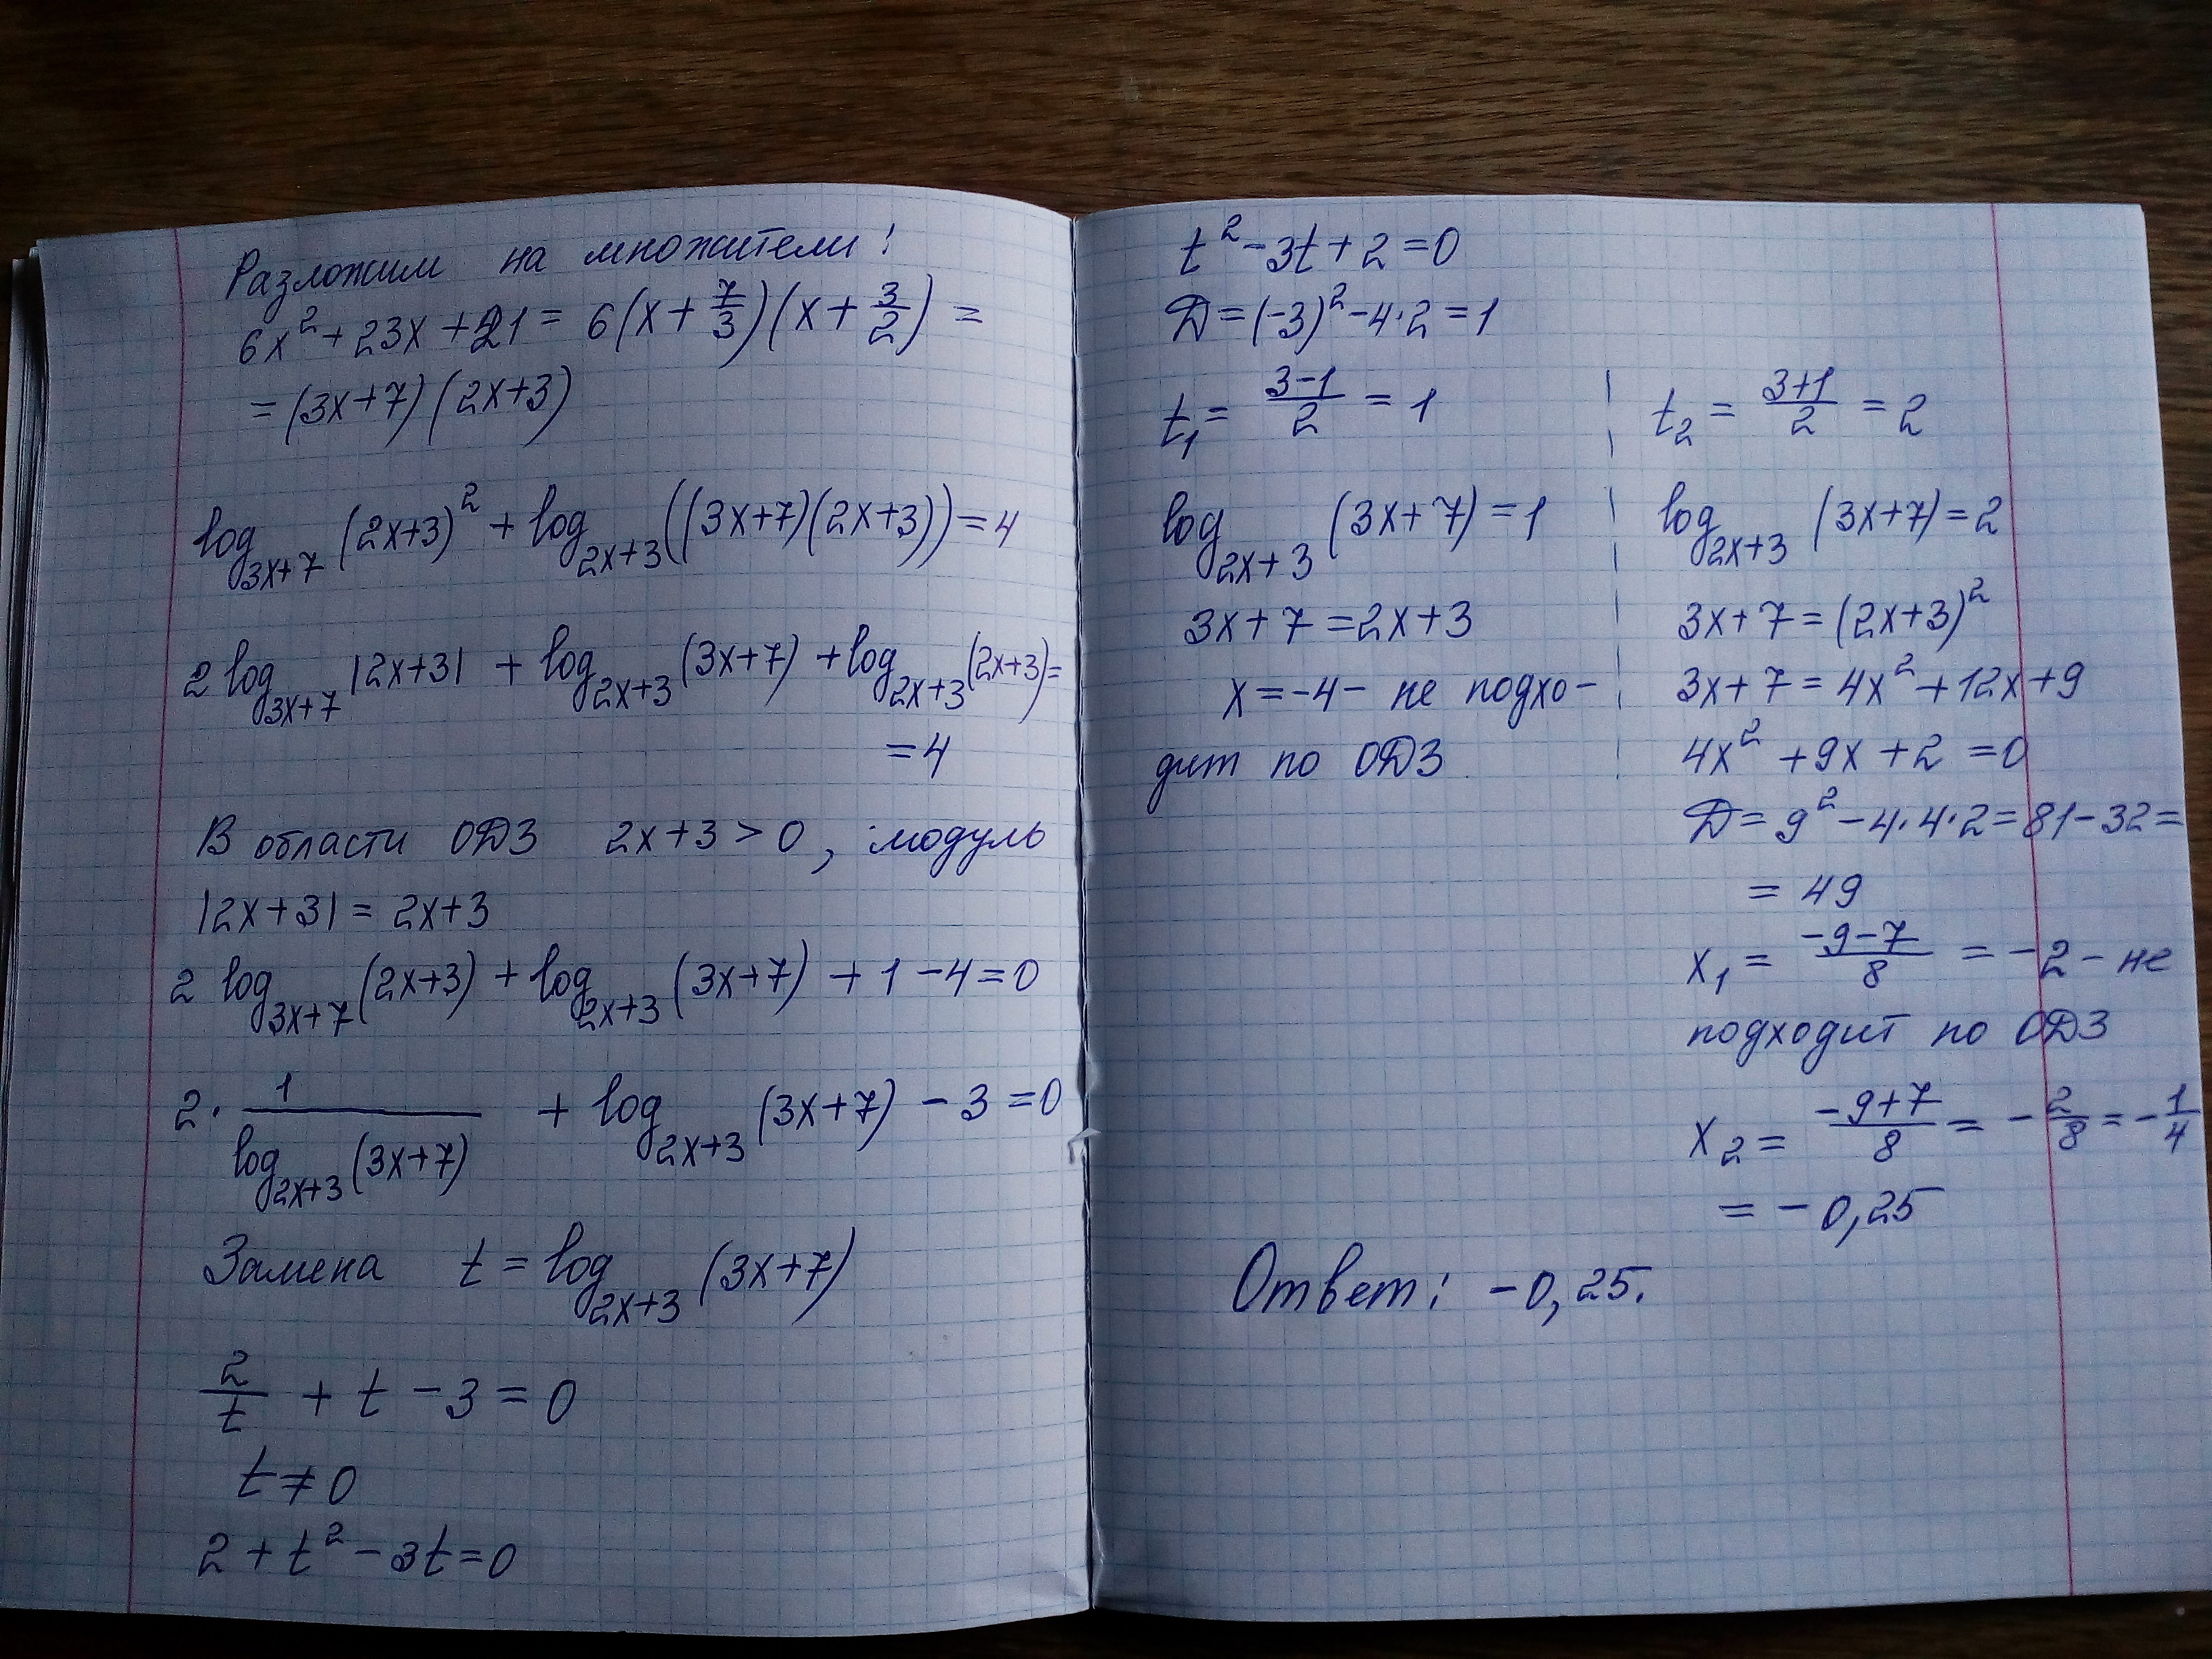 Разложим на множители:
6x² + 23x + 21 = 6(x + 7/3)(x + 3/2) =
= (3x+7)(2x+3)
log₃ₓ₊₇ (2x+3)² + log₂ₓ₊₃((3x+7)(2x+3)) = 4
2 log₃ₓ₊₇ |2x+3| + log₂ₓ₊₃ (3x+7) + log₂ₓ₊₃ (2x+3) =
= 4
В области ОДЗ 2x+3 > 0, модуль
|2x+3| = 2x+3
2 log₃ₓ₊₇ (2x+3) + log₂ₓ₊₃ (3x+7) + 1 - 4 = 0
2 · 1/log₂ₓ₊₃ (3x+7) + log₂ₓ₊₃ (3x+7) - 3 = 0
Замена t = log₂ₓ₊₃ (3x+7)
2/t + t - 3 = 0
t ≠ 0
2 + t² - 3t = 0
t² - 3t + 2 = 0
D = (-3)² - 4·2 = 1
t₁ = (3-1)/2 = 1
log₂ₓ₊₃ (3x+7) = 1
3x+7 = 2x+3
x = -4 - не подхо-
дит по ОДЗ
t₂ = (3+1)/2 = 2
log₂ₓ₊₃ (3x+7) = 2
3x+7 = (2x+3)²
3x+7 = 4x² + 12x + 9
4x² + 9x + 2 = 0
D = 9² - 4·4·2 = 81 - 32 =
= 49
x₁ = (-9-7)/8 = -2 - не
подходит по ОДЗ
x₂ = (-9+7)/8 = -2/8 = -1/4
= -0,25
Ответ: -0,25.